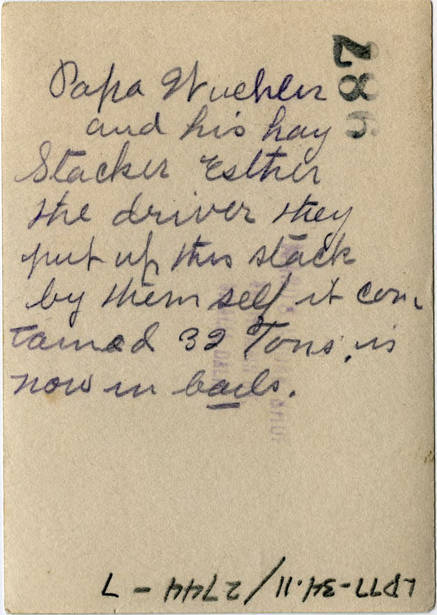 Papa Wuehler
and his hay
Stacker Esther
the driver they
put up this stack
by them self it con
tained 32 Tons, is
now in bails.
987
LP77-34.11/2744 - 7